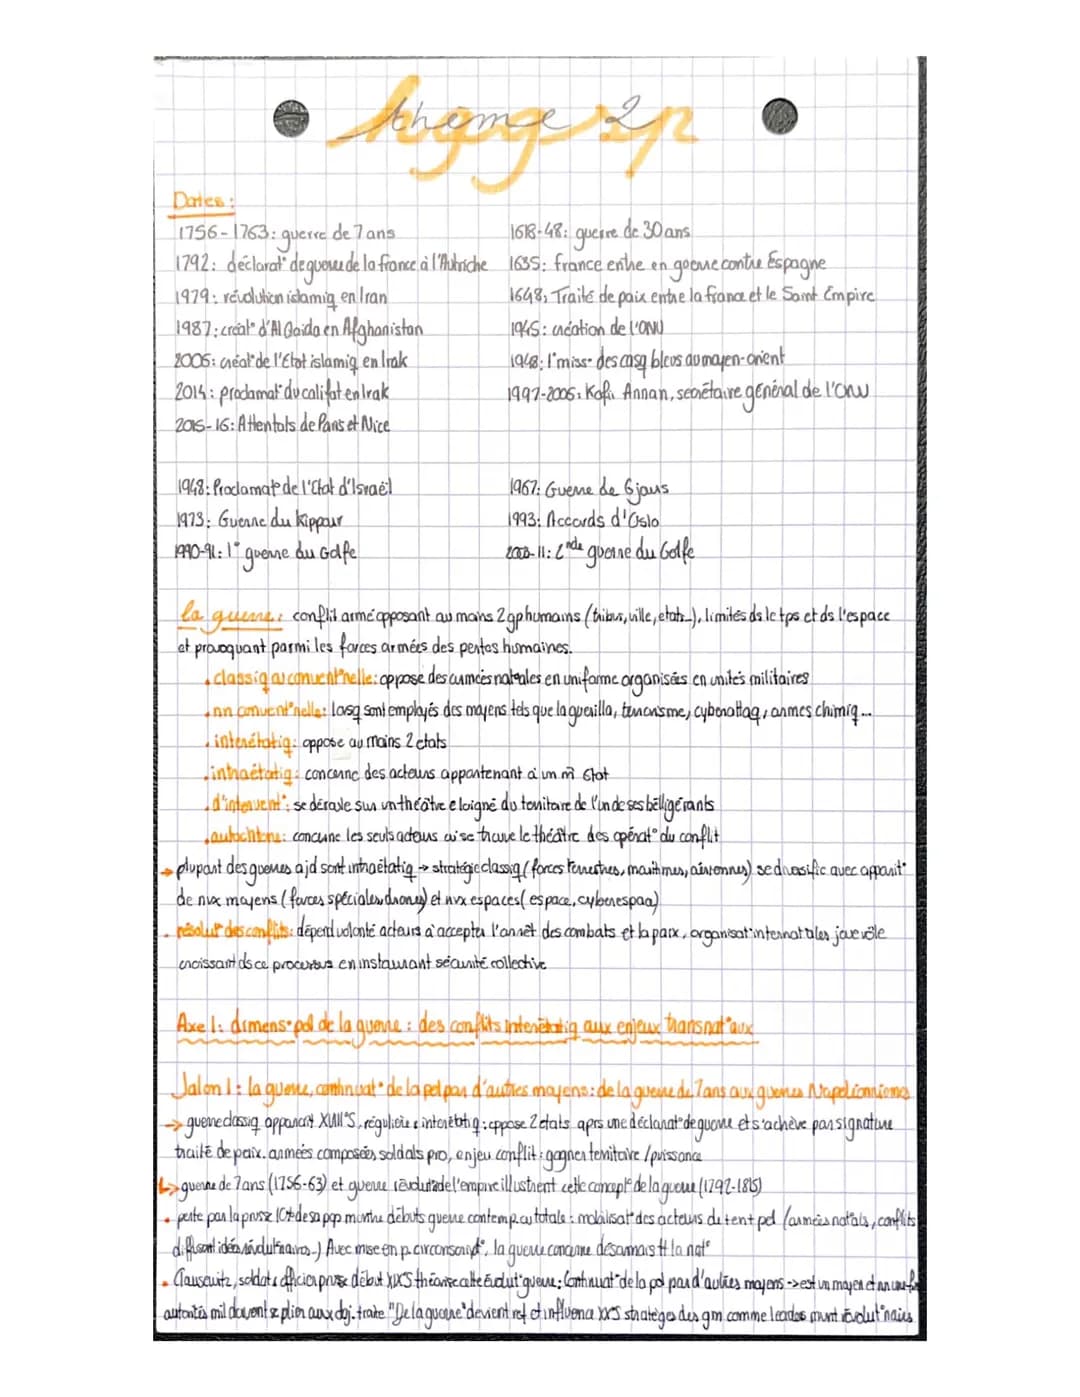 hggsp
thème 2
Dates :
1756-1763: guerre de 7 ans
1792: déclarat° de guerre de la france à l'Autriche
1979: révolution islamiq en Iran
1987: créat° d'Al Qaida en Afghanistan
2006: créat° de l'Etat islamiq en Irak
2014: proclamat° du califat en Irak
2015-16: Attentats de Paris et Nice
1618-48: guerre de 30 ans
1635: france entre en guerre contre Espagne
1648: Traité de paix entre la france et le Saint Empire
1945: création de l'ONU
1948: 1° miss° des casq bleus au moyen-orient
1997-2006: Kofi Annan, secrétaire général de l'ONU
1948: Proclamat° de l'Etat d'Israël
1973: Guerre du Kippour
1990-91: 1° guerre du Golfe
1967: Guerre de 6 jours
1993: Accords d'Oslo
2003-11: 2nde guerre du Golfe
la guerre: conflit armé opposant au moins 2 gp humains (tribus, ville, etats...), limités ds le tps et ds l'espace
et provoquant parmi les forces armées des pertes humaines.
. classiq ou convent°nelle: oppose des armées nat°ales en uniforme organisées en unités militaires
. nn convent°nelle: lorsq sont employés des moyens tels que la guerilla, terrorisme, cyberattaq, armes chimiq...
. interétatiq: oppose au moins 2 etats
. intraétatiq: concerne des acteurs appartenant à un m̂ Etat
. d'intervent°: se déroule sur un théâtre eloigné du territoire de l'un de ses belligérants
. autochtone: concerne les seuls acteurs où se trouve le théâtre des opérat° du conflit
→ plupart des guerres ajd sont intraétatiq → stratégie classiq (forces terrestres, maritimes, aériennes) se diversifie avec apparit°
de nvx moyens (forces spéciales, drones) et nvx espaces (espace, cyberespace)
. résolut° des conflits: dépend volonté acteurs à accepter l'arrêt des combats et la paix, organisat° internat°ales joue rôle
croissant ds ce processus en instaurant sécurité collective
Axe 1: dimens° pol de la guerre : des conflits interétatiq aux enjeux transnat°aux
Jalon 1: la guerre, continuat° de la pol par d'autres moyens: de la guerre de 7 ans aux guerres Napoléoniennes
→ guerre classiq apparait XVIII°S, régulière & interétatiq: oppose 2 etats aprs une déclarat° de guerre et s'achève par signature
traité de paix. armées composées soldats pro, enjeu conflit: gagner territoire / puissance
↳ guerre de 7 ans (1756-63) et guerre révolut° de l'empire illustrent cette concept° de la guerre (1792-1815)
. perte par la prusse 10% de sa pop montre débuts guerre contemp ou totale: mobilisat° des acteurs de tent pol (armées nat°als, conflits
diffusent idées révolut°naires...) Avec mise en p. circonscript°, la guerre concerne désormais tt la nat°
. Clausewitz, soldat & officier prusse début XIXS théorise cette évolut° guerre: Continuat° de la pol par d'autres moyens -> est un moyen et nn une fin
autorités mil doivent se plier aux obj. traité "De la guerre" devient ref et influença XXS stratèges des gm comme leaders mvnt révolut°naires